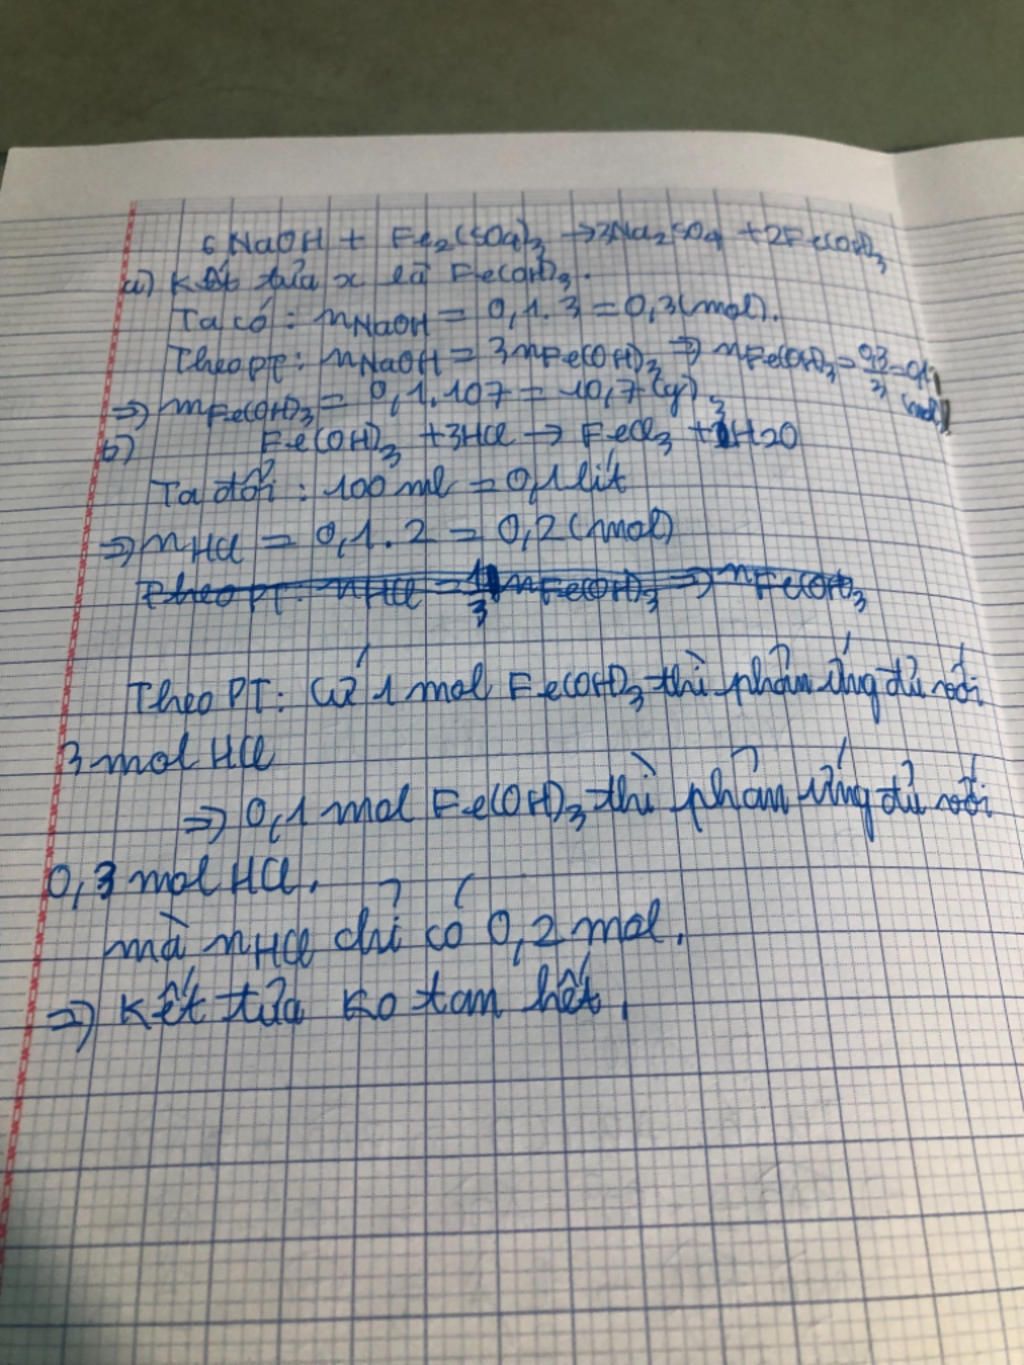 6NaOH + Fe2(SO4)3 → 3Na2SO4 + 2Fe(OH)3
a) Kết tủa x là Fe(OH)3.
Ta có: nNaOH = 0,1.3 = 0,3(mol).
Theo PT: nNaOH = 3nFe(OH)3 ⇒ nFe(OH)3 = 0,3/3 = 0,1 (mol)
⇒ mFe(OH)3 = 0,1.107 = 10,7(g).
b) Fe(OH)3 + 3HCl → FeCl3 + 3H2O
Ta đổi: 100 ml = 0,1 lít
⇒ nHCl = 0,1.2 = 0,2(mol)
Theo PT: nHCl = 1/3 nFe(OH)3 ⇒ nFe(OH)3
Theo PT: Cứ 1 mol Fe(OH)3 thì phản ứng đủ với
3 mol HCl
⇒ 0,1 mol Fe(OH)3 thì phản ứng đủ với
0,3 mol HCl.
mà nHCl chỉ có 0,2 mol.
⇒ Kết tủa ko tan hết.